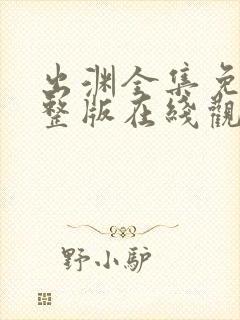 出渊全集免
整版在线觀
野小驴